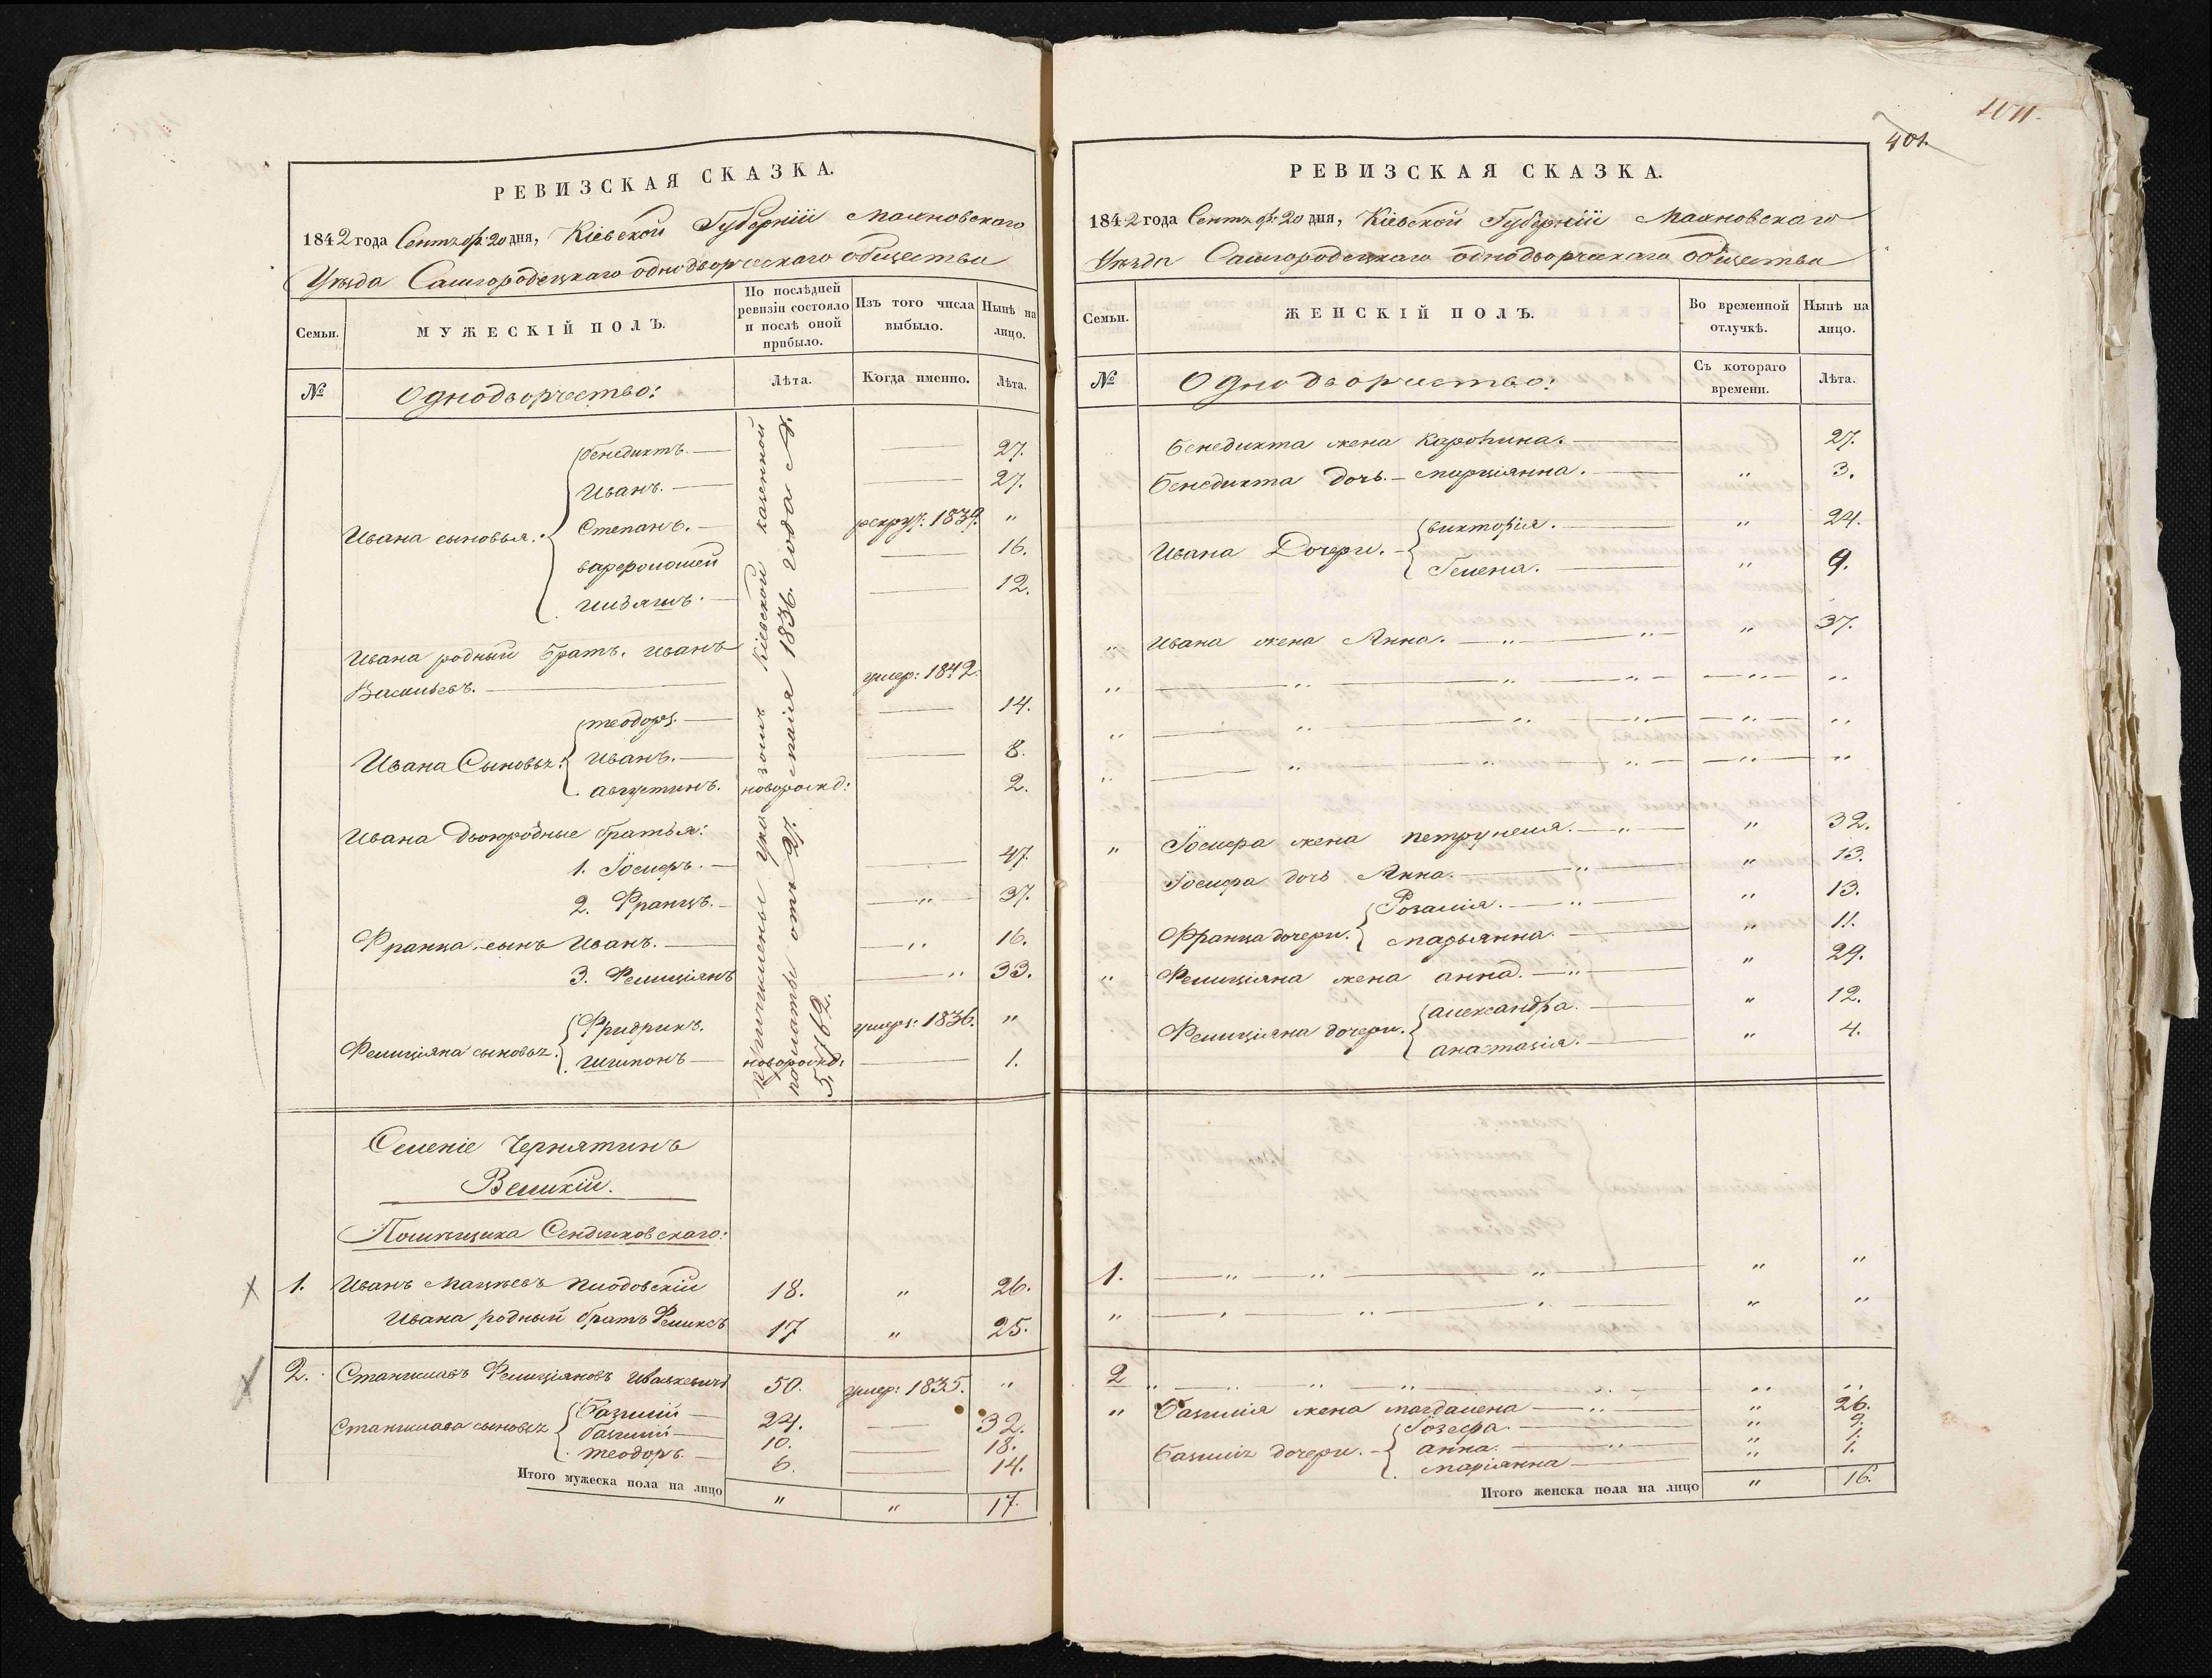 РЕВИЗСКАЯ СКАЗКА.
1842 года Сентяб: 20 дня, Кіевской Губерніи Махновскаго
Уѣзда Самгородецкаго однодворческаго общества
Семьи.
МУЖЕСКІЙ ПОЛЪ.
По послѣдней ревизіи состояло и послѣ оной прибыло.
Изъ того числа выбыло.
Нынѣ на лицо.
№
Однодворчество:
Лѣта.
Когда именно.
Лѣта.
Ивана сыновья:
Бенедиктъ. — 27.
Иванъ. — 27.
Степанъ. — рекрут: 1839. "
варфоломей — 16.
— 12.
Ивана родный братъ. Иванъ
Васильевъ. — умер: 1842.
Ивана Сыновья:
теодоръ. — 14.
Иванъ. — 8.
Августинъ. новорожд: 2.
Ивана двоюродные братья:
1. Іосифъ. — 47.
2. Францъ. — " 37.
Франца сынъ Иванъ. — " 16.
3. Фелиціянъ — " 33.
Фелиціяна сыновья:
Фридрихъ. умеръ: 1836. "
Шимонъ — новорожд: — 1.
Причислены указомъ Кіевской казенной
палаты отъ 27. маія 1836. года №.
5,762.
Селеніе Чернятинъ
Великій.
Помѣщика Сендзиковскаго:
1. Иванъ Мацѣевъ Пиодовскій 18. " 26.
Ивана родный братъ Феликсъ 17 " 25.
2. Станиславъ Фелиціяновъ Ивашкевичъ 50. умер: 1835. "
Станислава сыновья
Базилій — 24. — 32.
Базилій — 10. — 18.
теодоръ. — 6. — 14.
Итого мужеска пола на лицо " " 17.
401.
РЕВИЗСКАЯ СКАЗКА.
1842 года Сентяб: 20 дня, Кіевской Губерніи Махновскаго
Уѣзда Самгородецкаго однодворческаго общества
Семьи.
ЖЕНСКІЙ ПОЛЪ.
Во временной отлучкѣ.
Нынѣ на лицо.
№
Однодворчество:
Съ котораго времени.
Лѣта.
Бенедикта жена Каролина. — 27.
Бенедикта дочь. — Марціянна. — " 3.
Ивана Дочери. —
викторія. — " 24.
Гелена. — " 9.
" Ивана жена Анна. — " — " — " 37.
" — " — " — " — " — "
" — " — " — " — " — "
" — " — " — " — " — "
" Іосифа жена петрунеля. — " — " 32.
Іосифа дочь Анна. — " — " 13.
Франца дочери.
Розалія. — " — " 13.
Марьянна. — " 11.
" Фелиціяна жена анна. — " — " 29.
Фелиціяна дочери.
александра. — " 12.
анастасія. — " 4.
1. — " — " — " — " "
" — " — " — " — " "
2 " — " — " — " — " "
" Базилія жена магдалена — " — " 26.
Базилія дочери. —
Іозефа. — " 9.
анна. — " — " 1.
Маріянна — " 1.
Итого женска пола на лицо " 16.